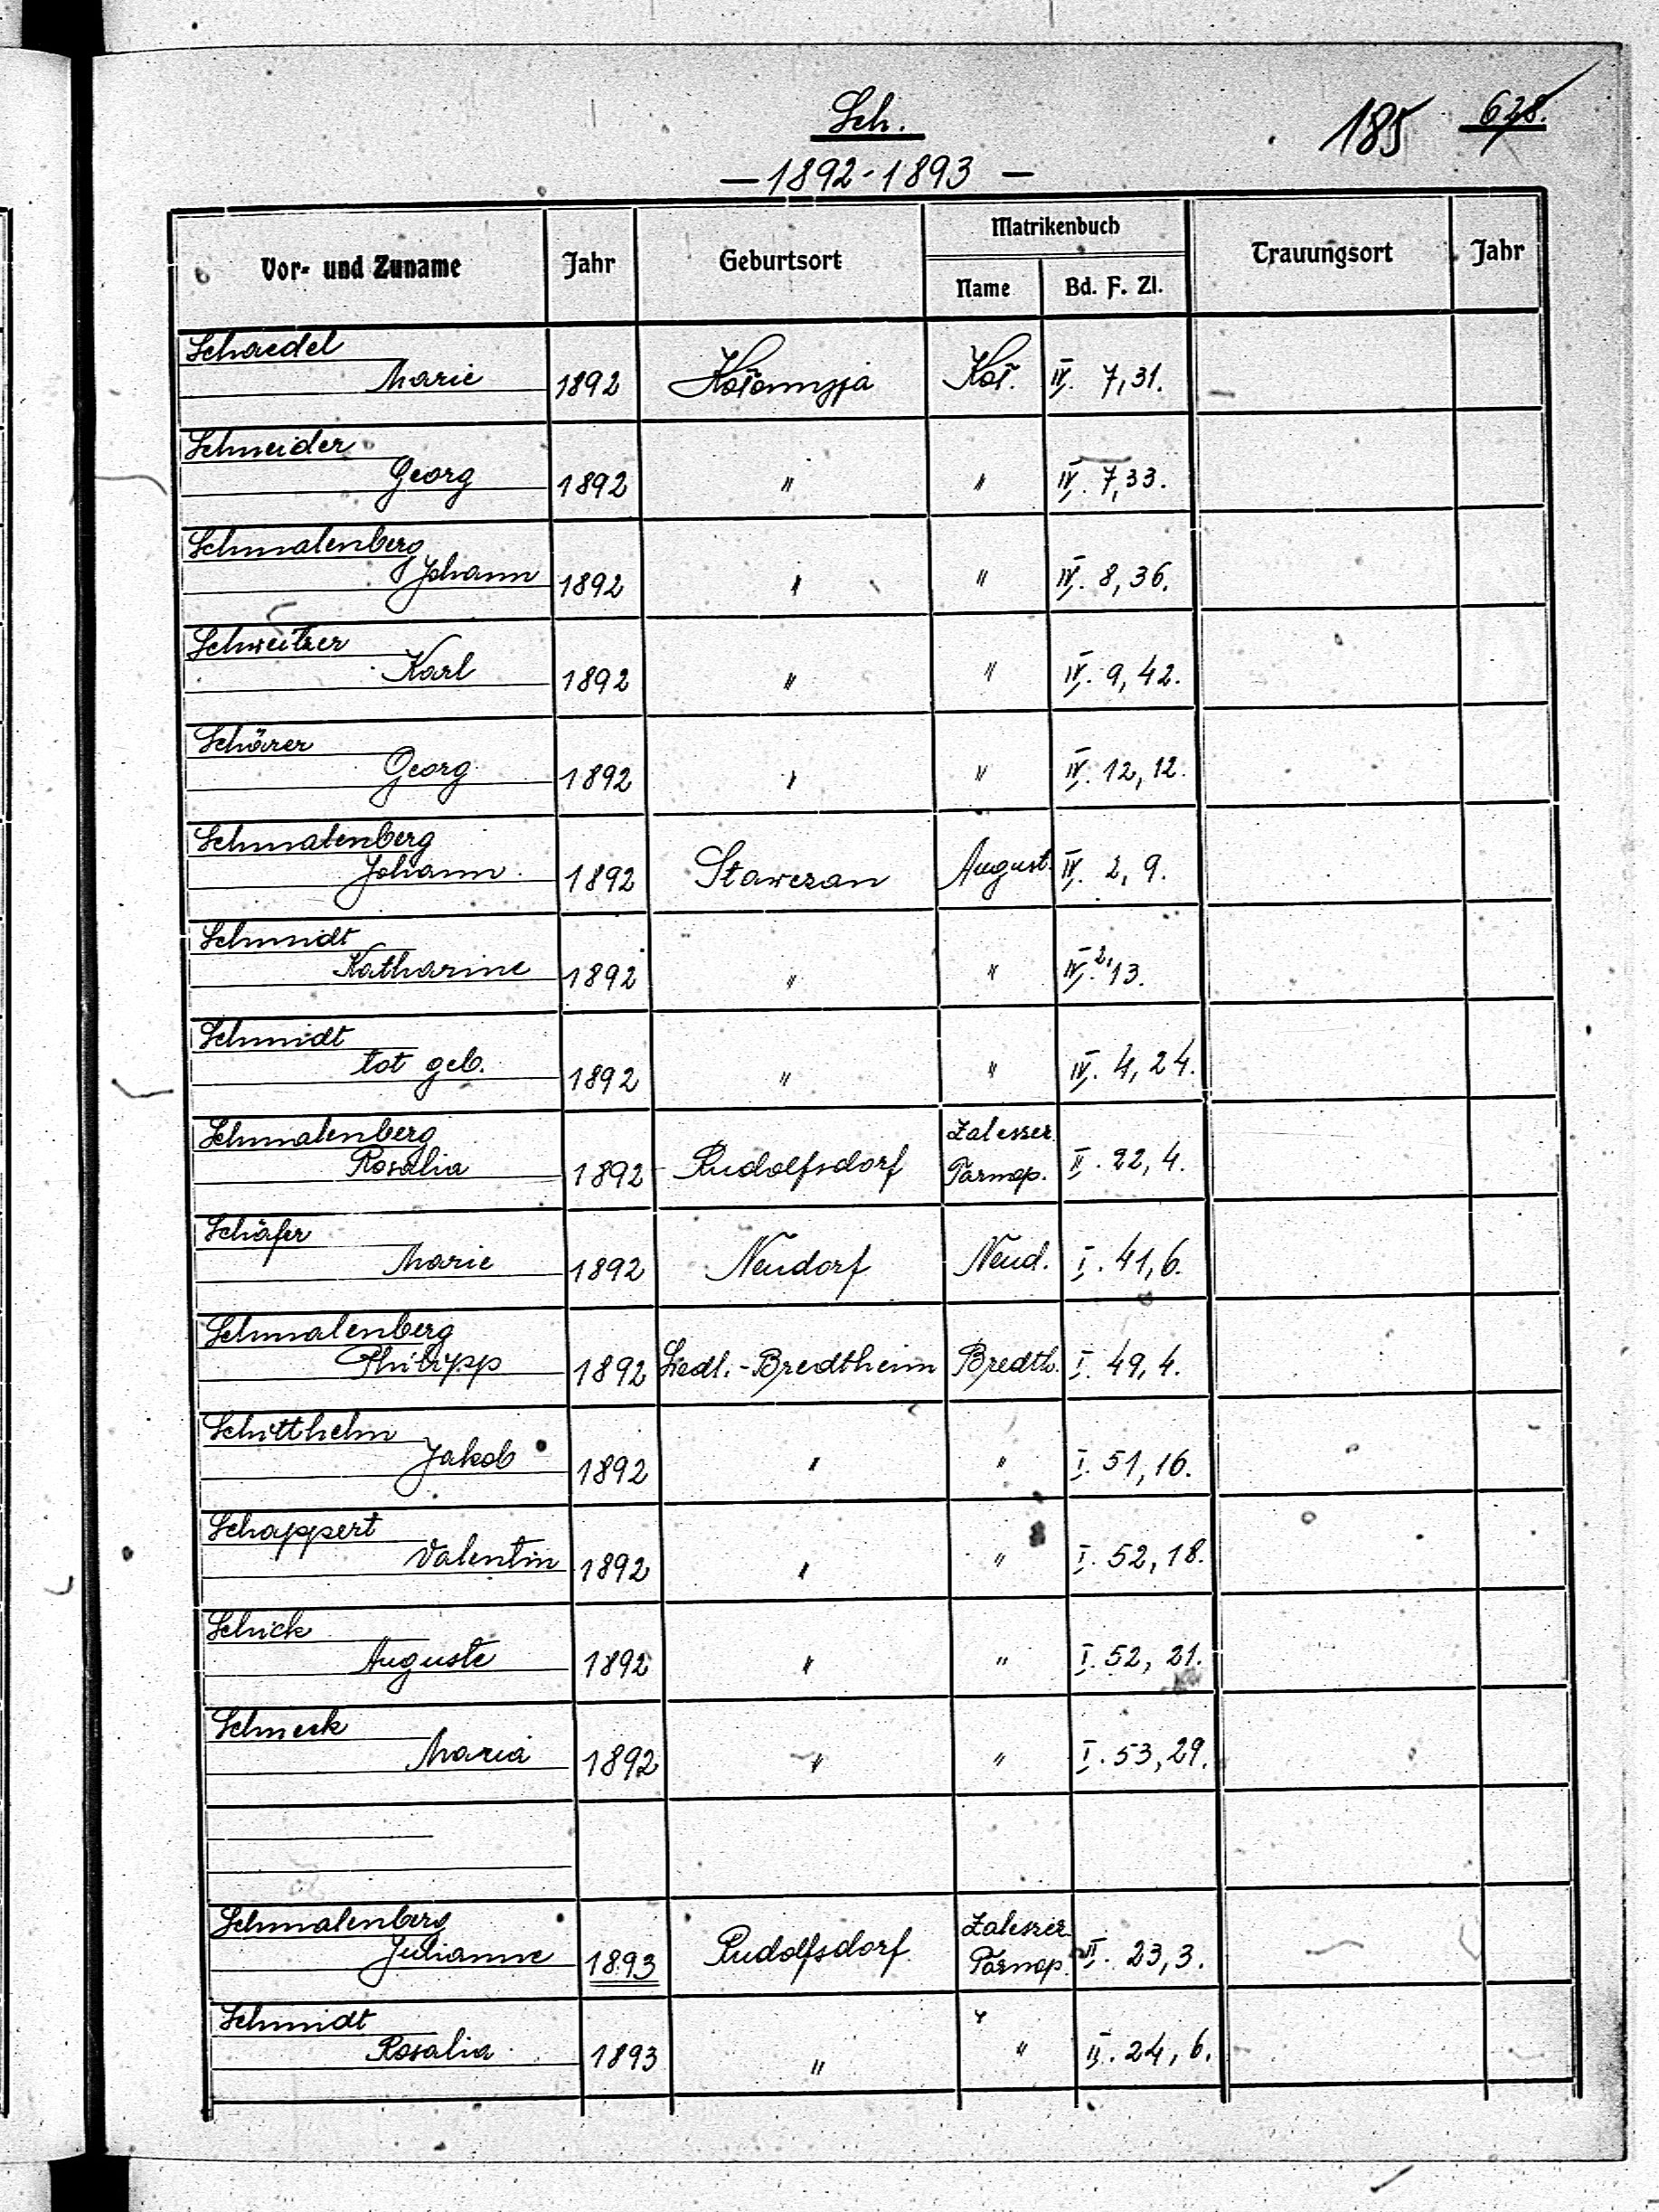 Sch.
185 628.
— 1892-1893 —
Vor- und Zuname Jahr Geburtsort Matrikenbuch Trauungsort Jahr
Name Bd. F. Zl.
Schaedel
Marie 1892 Kołomyja Koł. IV. 7,31.
Schneider
Georg 1892 " " IV. 7,33.
Schmalenberg
Johann 1892 " " IV. 8,36.
Schweitzer
Karl 1892 " " IV. 9,42.
Schärer
Georg 1892 " " IV. 12,12.
Schmalenberg
Johann 1892 Stawczan August. IV. 2,9.
Schmidt
Katharine 1892 " " IV. 2,13.
Schmidt
tot geb. 1892 " " IV. 4,24.
Schmalenberg Zaleszcz.
Rosalia 1892 Rudolfsdorf Tarnop. II. 22,4.
Schäfer
Marie 1892 Neudorf Neud. I. 41,6.
Schmalenberg
Philipp 1892 Siedl.-Bredtheim Bredth. I. 49,4.
Schitthelm
Jakob 1892 " " I. 51,16.
Schappert
Valentin 1892 " " I. 52,18.
Schick
Auguste 1892 " " I. 52,21.
Schneck
Maria 1892 " " I. 53,29.
Schmalenberg Zaleszcz.
Julianne 1893 Rudolfsdorf Tarnop. II. 23,3.
Schmidt "
Rosalia 1893 " " II. 24,6.